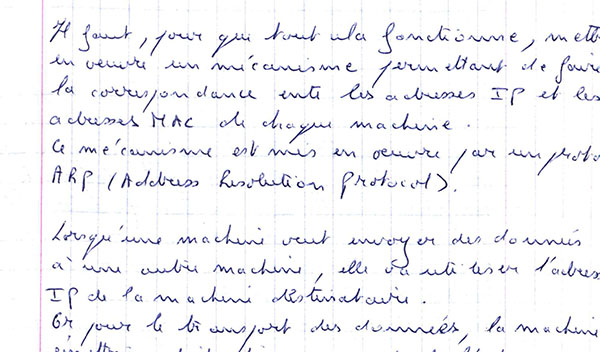 Il faut, pour que tout cela fonctionne, mett
en oeuvre un mécanisme permettant de faire
la correspondance ente les adresses IP et les
adresses MAC de chaque machine.
Ce mécanisme est mis en oeuvre par un proto
ARP (Address Resolution Protocol).
Lorsqu'une machine veut envoyer des données
à une autre machine, elle va utiliser l'adress
IP de la machine destinataire.
Or pour le transport des données, la machine